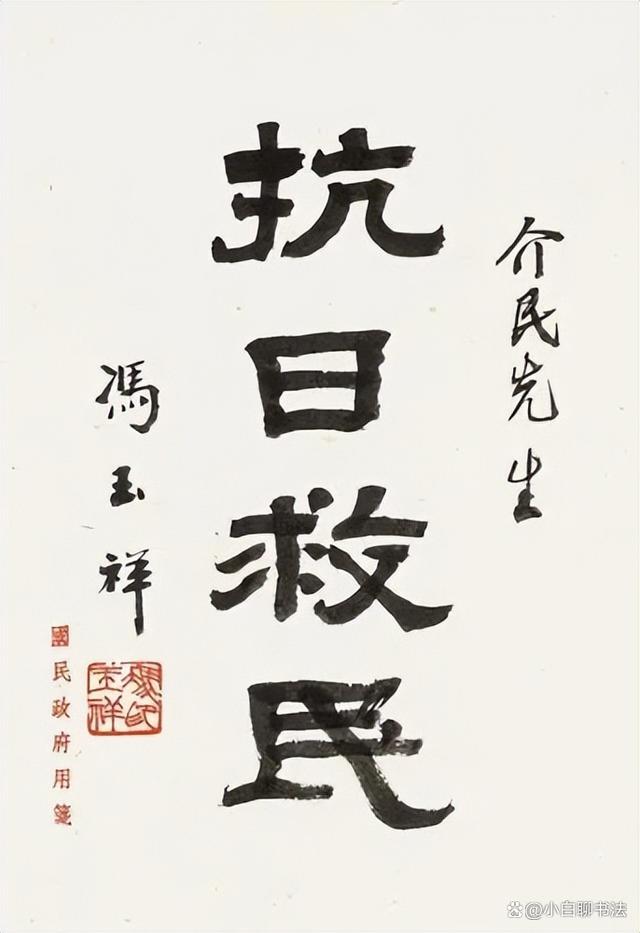 介民先生
抗日救民
馮玉祥
馮玉祥印
國民政府用箋
@小白聊书法